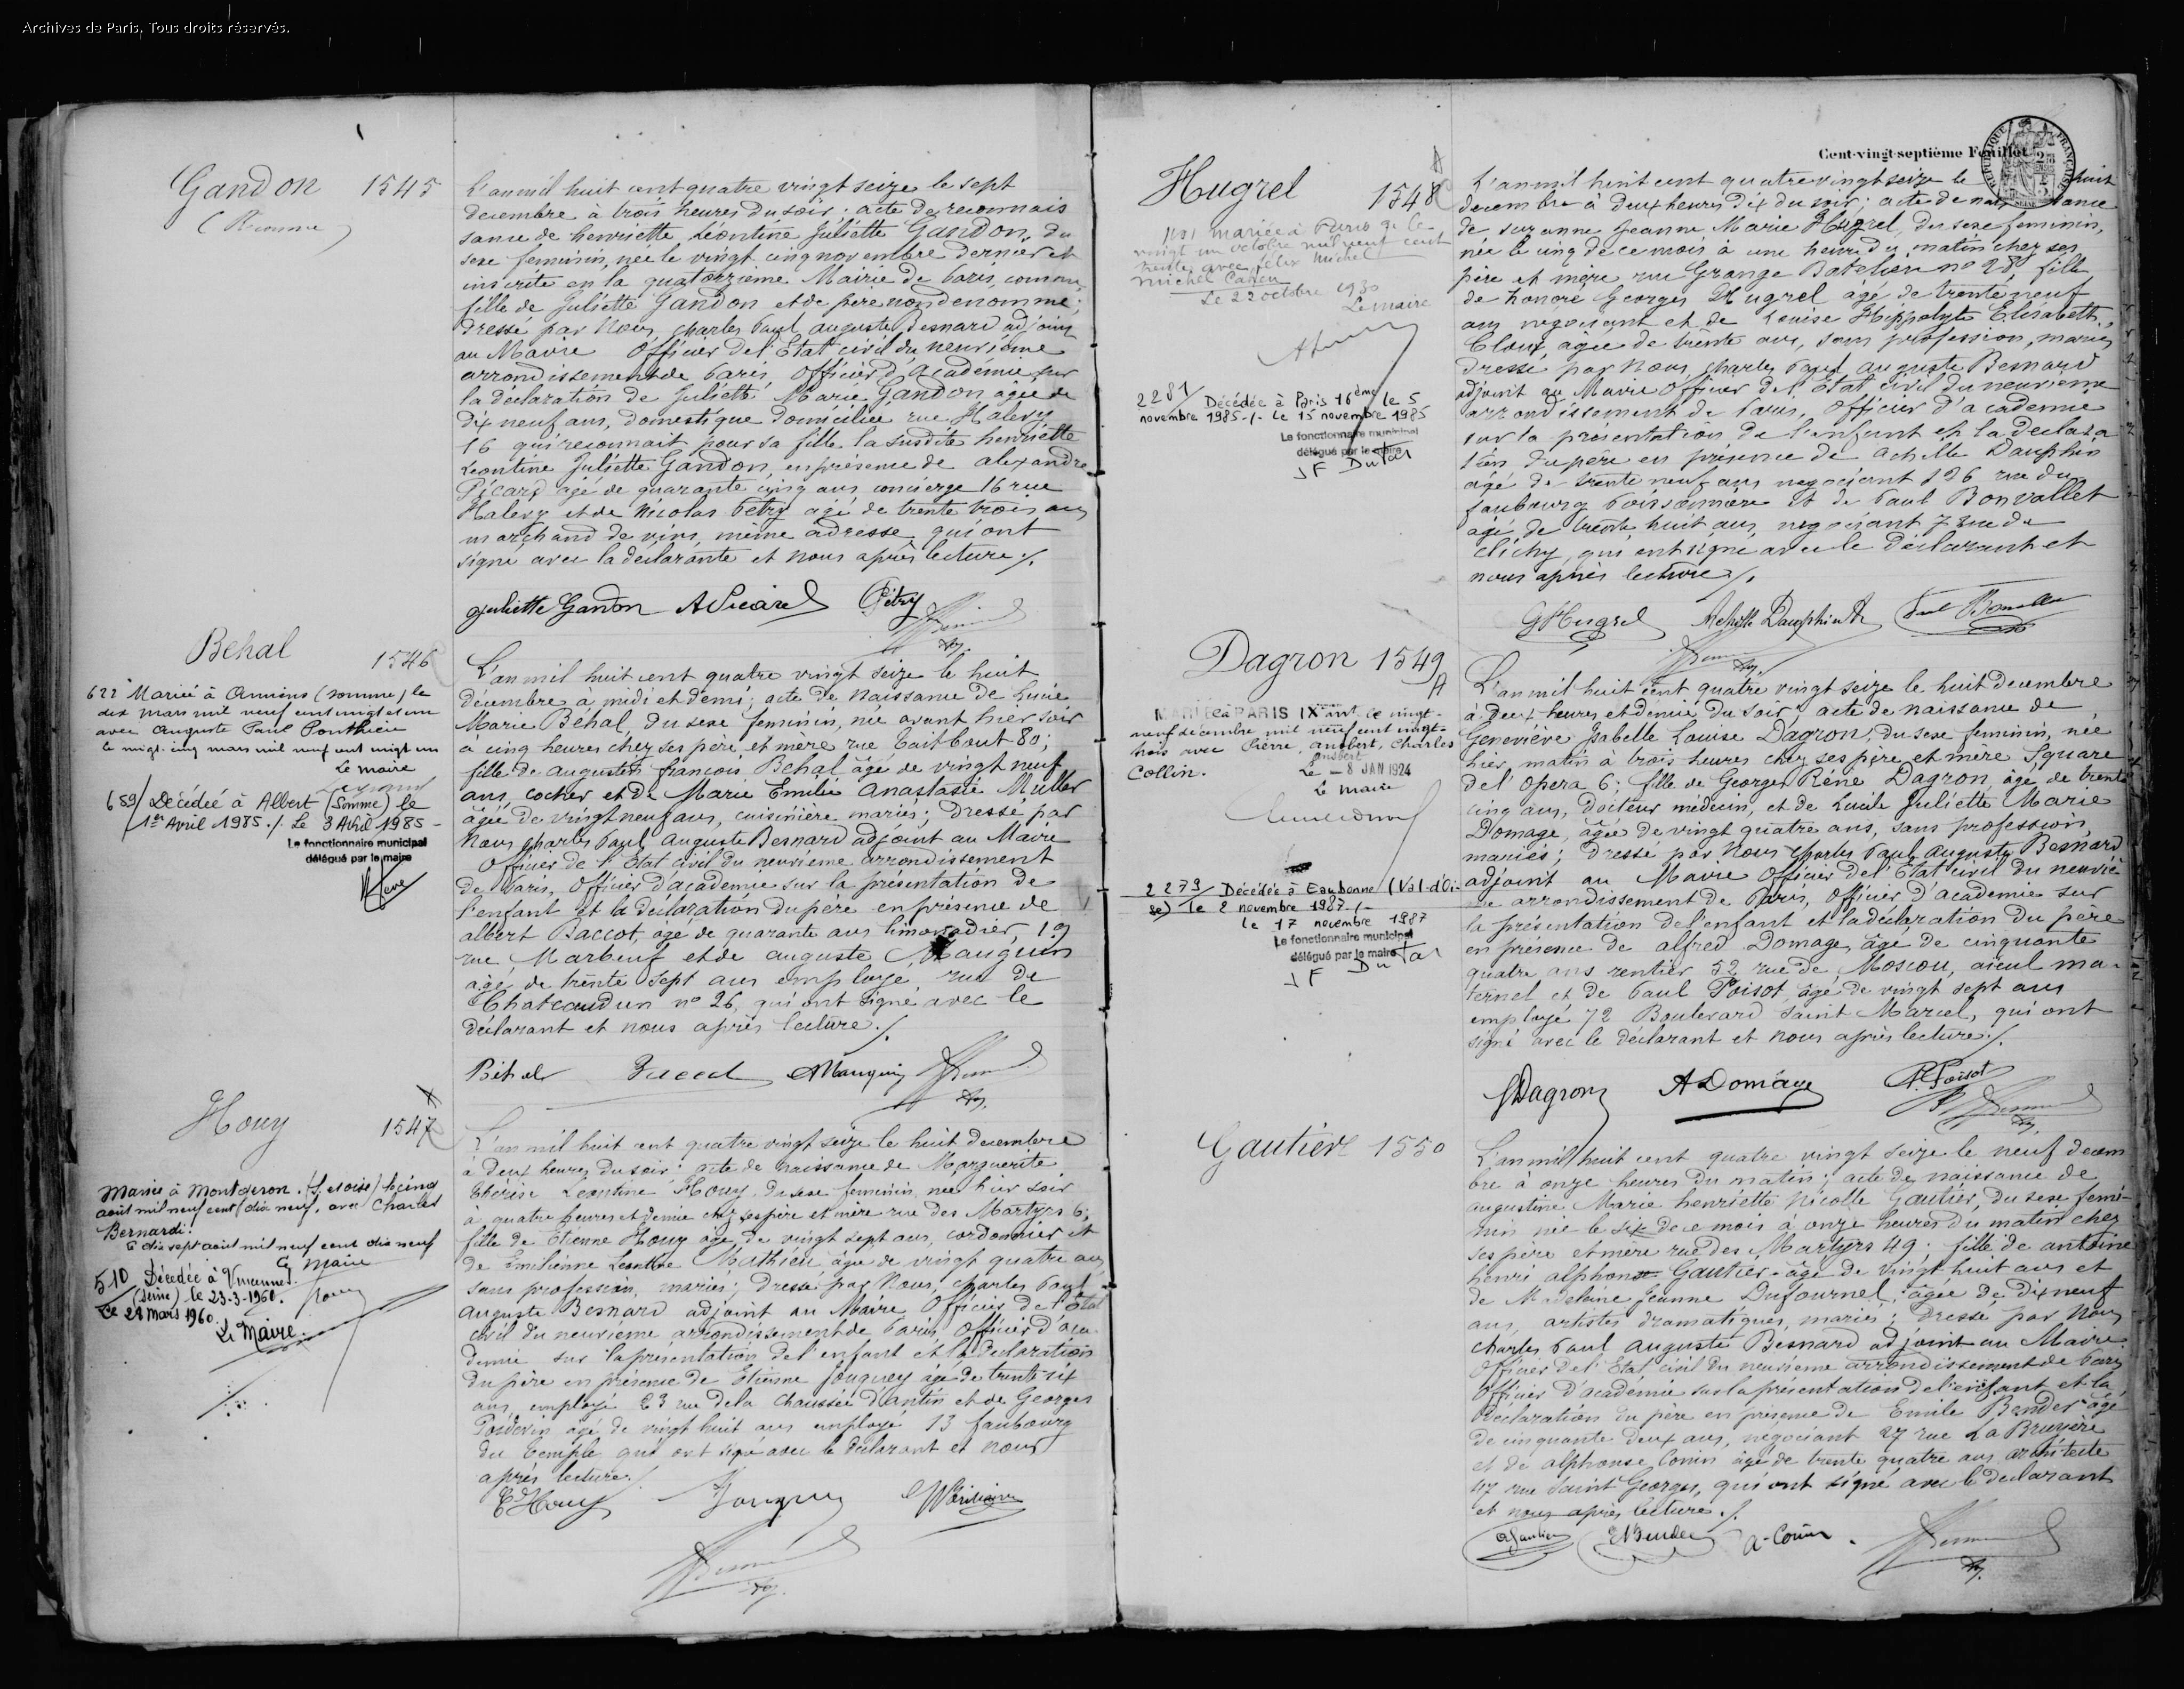 Archives de Paris. Tous droits réservés.
Gandon 1545
(Reconnue)
L'an mil huit cent quatre vingt seize le sept
decembre à trois heures du soir ; acte de reconnais
sance de henriette Léontine Juliette Gandon, du
sexe feminin, née le vingt cinq novembre dernier et
inscrite en la quatorzieme Mairie de Paris, comme
fille de Juliette Gandon et de père non denommé ;
Dressé par Nous, Charles Paul auguste Besnard adjoint
au Maire Officier de l'Etat civil du neuvième
arrondissement de Paris, Officier d'academie, sur
la declaration de Juliette Marie Gandon agée de
Dix neuf ans, domestique domiciliée rue Halevy
16 qui reconnait pour sa fille la susdite henriette
Leontine Juliette Gandon, en présence de alexandre
Picard agé de quarante cinq ans concierge 16 rue
Halevy et de Nicolas Petry agé de trente trois ans
marchand de vins, même adresse, qui ont
signé avec la déclarante et nous après lecture ./.
Juliette Gandon A Picard Pétry
Behal 1546
622 Mariée à Amiens (Somme) le
dix mars mil neuf cent vingt et un
avec Auguste Paul Ponthieu
le vingt-cinq mars mil neuf cent vingt un
Le maire
659/ Décédée à Albert (Somme) le
1er Avril 1985 ./. Le 3 Avril 1985 -
Le fonctionnaire municipal
délégué par le maire
L'an mil huit cent quatre vingt seize le huit
décembre à midi et demi ; acte de naissance de Lucie
Marie Behal, du sexe feminin, née avant hier soir
a cinq heures chez ses père et mère rue Taitbout 80 ;
fille de auguste françois Behal âgé de vingt neuf
ans, cocher et de Marie Emilie anastasie Muller
âgée de vingt neuf ans, cuisinière mariés ; Dressé par
Nous Charles Paul Auguste Besnard adjoint au Maire
Officier de l'Etat civil du neuvieme arrondissement
de Paris, Officier d'académie sur la présentation de
l'enfant et la déclaration du père en présence de
albert Baccot, agé de quarante ans limonadier, 19
rue Marbeuf et de auguste Mauguin
agé de trente sept ans employé rue de
Chateaudun no 26, qui ont signé avec le
déclarant et nous après lecture ./.
Béhal Baccot AMauguin
Houy 1547
Mariée à Montgeron (S. et oise) le cinq
août mil neuf cent dix neuf, avec Charles
Bernardi.
Le dix sept août mil neuf cent dix neuf
Le Maire
510 Décédée à Vincennes
(Seine) le 23-3-1960.
Le 28 Mars 1960.
Le Maire.
L'an mil huit cent quatre vingt seize le huit decembre
à Deux heures du soir ; acte de naissance de Marguerite
Thérèse Leontine Houy du sexe feminin née hier soir
à quatre heures et demie chez ses père et mère rue des Martyrs 6 ;
fille de Etienne Houy âgé de vingt sept ans, cordonnier et
de Emilienne Leontine Mathieu, agée de vingt quatre ans,
sans profession, mariés ; Dressé par Nous, Charles Paul
Auguste Besnard adjoint au Maire Officier de l'Etat
civil du neuvième arrondissement de Paris, Officier d'aca
démie sur la présentation de l'enfant et la déclaration
du père en présence de Etienne Jouguey âgé de trente six
ans, employé 23 rue de la Chaussée d'antin et de Georges
agé de vingt huit ans employé 13 faubourg
du Temple qui ont signé avec le déclarant et nous
après lecture ./.
Et Houy
Cent-vingt-septième Feuillet
Hugrel 1548
mariée à Paris 9e le
vingt un octobre mil neuf cent
trente avec Félix Michel
Michel Cahen
Le 22 octobre 1930
Le maire
2281/ Décédée à Paris 16ème le 5
novembre 1985 -/- Le 15 novembre 1985
Le fonctionnaire municipal
délégué par le maire
L'an mil huit cent quatre vingt seize le huit
decembre à deux heures dix du soir ; acte de naissance
de suzanne Jeanne Marie Hugrel, du sexe feminin,
née le cinq de ce mois à une heure du matin chez ses
père et mère rue Grange Batelière no 28, fille
de honoré Georges Hugrel âgé de trente neuf
ans negociant et de Louise Hippolyte Elisabeth
agée de trente ans, sans profession, mariés
Dressé par Nous Charles Paul Auguste Besnard
adjoint au Maire Officier de l'Etat civil du neuvieme
arrondissement de Paris, Officier d'academie
sur la présentation de l'enfant et la declara
tion du père en présence de achille Dauphin
agé de trente neuf ans negociant 126 rue du
faubourg Poissonnière et de Paul Bonvallet
agé de trente huit ans, negociant 7 rue de
Clichy, qui ont signé avec le déclarant et
nous après lecture ./.
GHugrel Achille Dauphin
Dagron 1549
MARIÉE à PARIS IXe arrt le vingt-
neuf décembre mil neuf cent vingt-
trois avec Pierre, Charles
Collin.
Le - 8 JAN 1924
Le maire
2279/ Décédée à Eaubonne (Val-d'Oi-
se) le 2 novembre 1987 -/-
le 17 novembre 1987
Le fonctionnaire municipal
délégué par le maire
L'an mil huit cent quatre vingt seize le huit decembre
à deux heures et demie du soir, acte de naissance de
Geneviève Isabelle Louise Dagron, du sexe feminin, née
hier, matin à trois heures chez ses père et mère Square
de l'Opera 6 ; fille de Georges Réné Dagron, âgé de trente
cinq ans, docteur médecin, et de Lucile Juliette Marie
Domage, âgée de vingt quatre ans, sans profession,
mariés ; Dressé par Nous Charles Paul Auguste Besnard
adjoint au Maire Officier de l'Etat civil du neuviè
me arrondissement de Paris, Officier d'academie sur
la présentation de l'enfant et la déclaration du père
en présence de alfred Domage, âgé de cinquante
quatre ans rentier 52 rue de Moscou, aieul ma-
ternel et de Paul Poisot, âgé de vingt sept ans
employé 72 Boulevard Saint Marcel, qui ont
signé avec le déclarant et nous après lecture ./.
Dagron ADomage P. Poisot
Gautier 1550
L'an mil huit cent quatre vingt seize le neuf decem
bre à onze heures du matin ; acte de naissance de
augustine Marie henriette Nicolle Gautier, du sexe femi-
nin née le six de ce mois à onze heures du matin chez
ses père et mère rue des Martyrs 49 ; fille de antoine
henri alphonse Gautier âgé de vingt huit ans et
de Madeleine Jeanne Dufournel, agée de Dix neuf
ans, artistes dramatiques, mariés ; Dressé par Nous
Charles Paul Auguste Besnard adjoint au Maire
Officier de l'Etat civil du neuvieme arrondissement de Paris
Officier d'académie sur la présentation de l'enfant et la
déclaration du père en présence de Emile Bender agé
de cinquante deux ans, negociant 27 rue La Bruyère
et de alphonse Conin agé de trente quatre ans architecte
47 rue Saint Georges, qui ont signé avec le déclarant
et nous après lecture ./.
AGautier EBender A. Conin